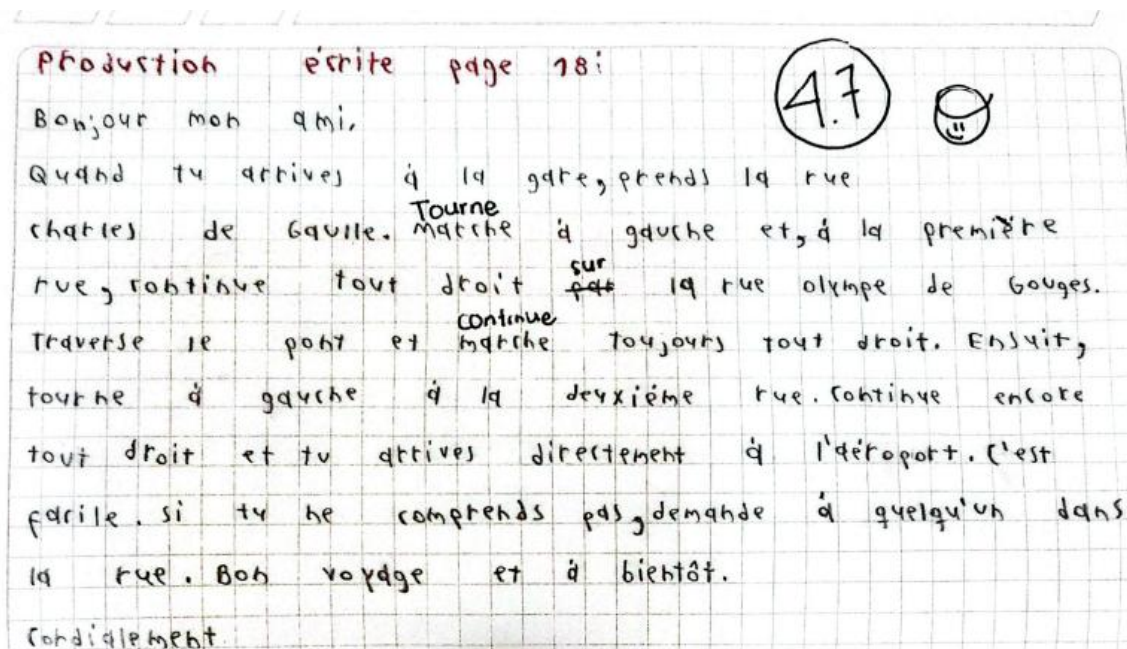 Production écrite page 18:
4.7
Bonjour mon ami,
Quand tu arrives à la gare, prends la rue
Tourne
charles de Gaulle. Marche à gauche et, à la première
sur
rue, continue tout droit par la rue olympe de Gouges.
continue
Traverse le pont et marche toujours tout droit. Ensuit,
tourne à gauche à la deuxième rue. Continue encore
tout droit et tu arrives directement à l'aéroport. C'est
facile. si tu ne comprends pas, demande à quelqu'un dans
la rue. Bon voyage et à bientôt.
Cordialement